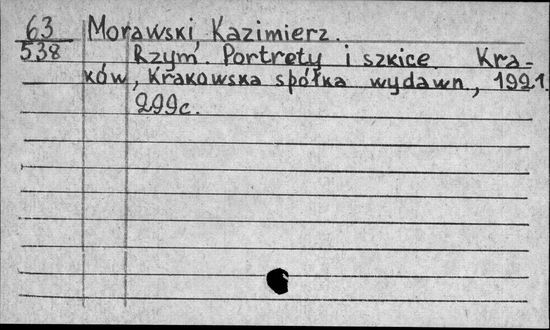 63 Morawski Kazimierz.
538 Rzym. Portrety i szkice. Kra-
ków, Krakowska spółka wydawn, 1921.
299c.